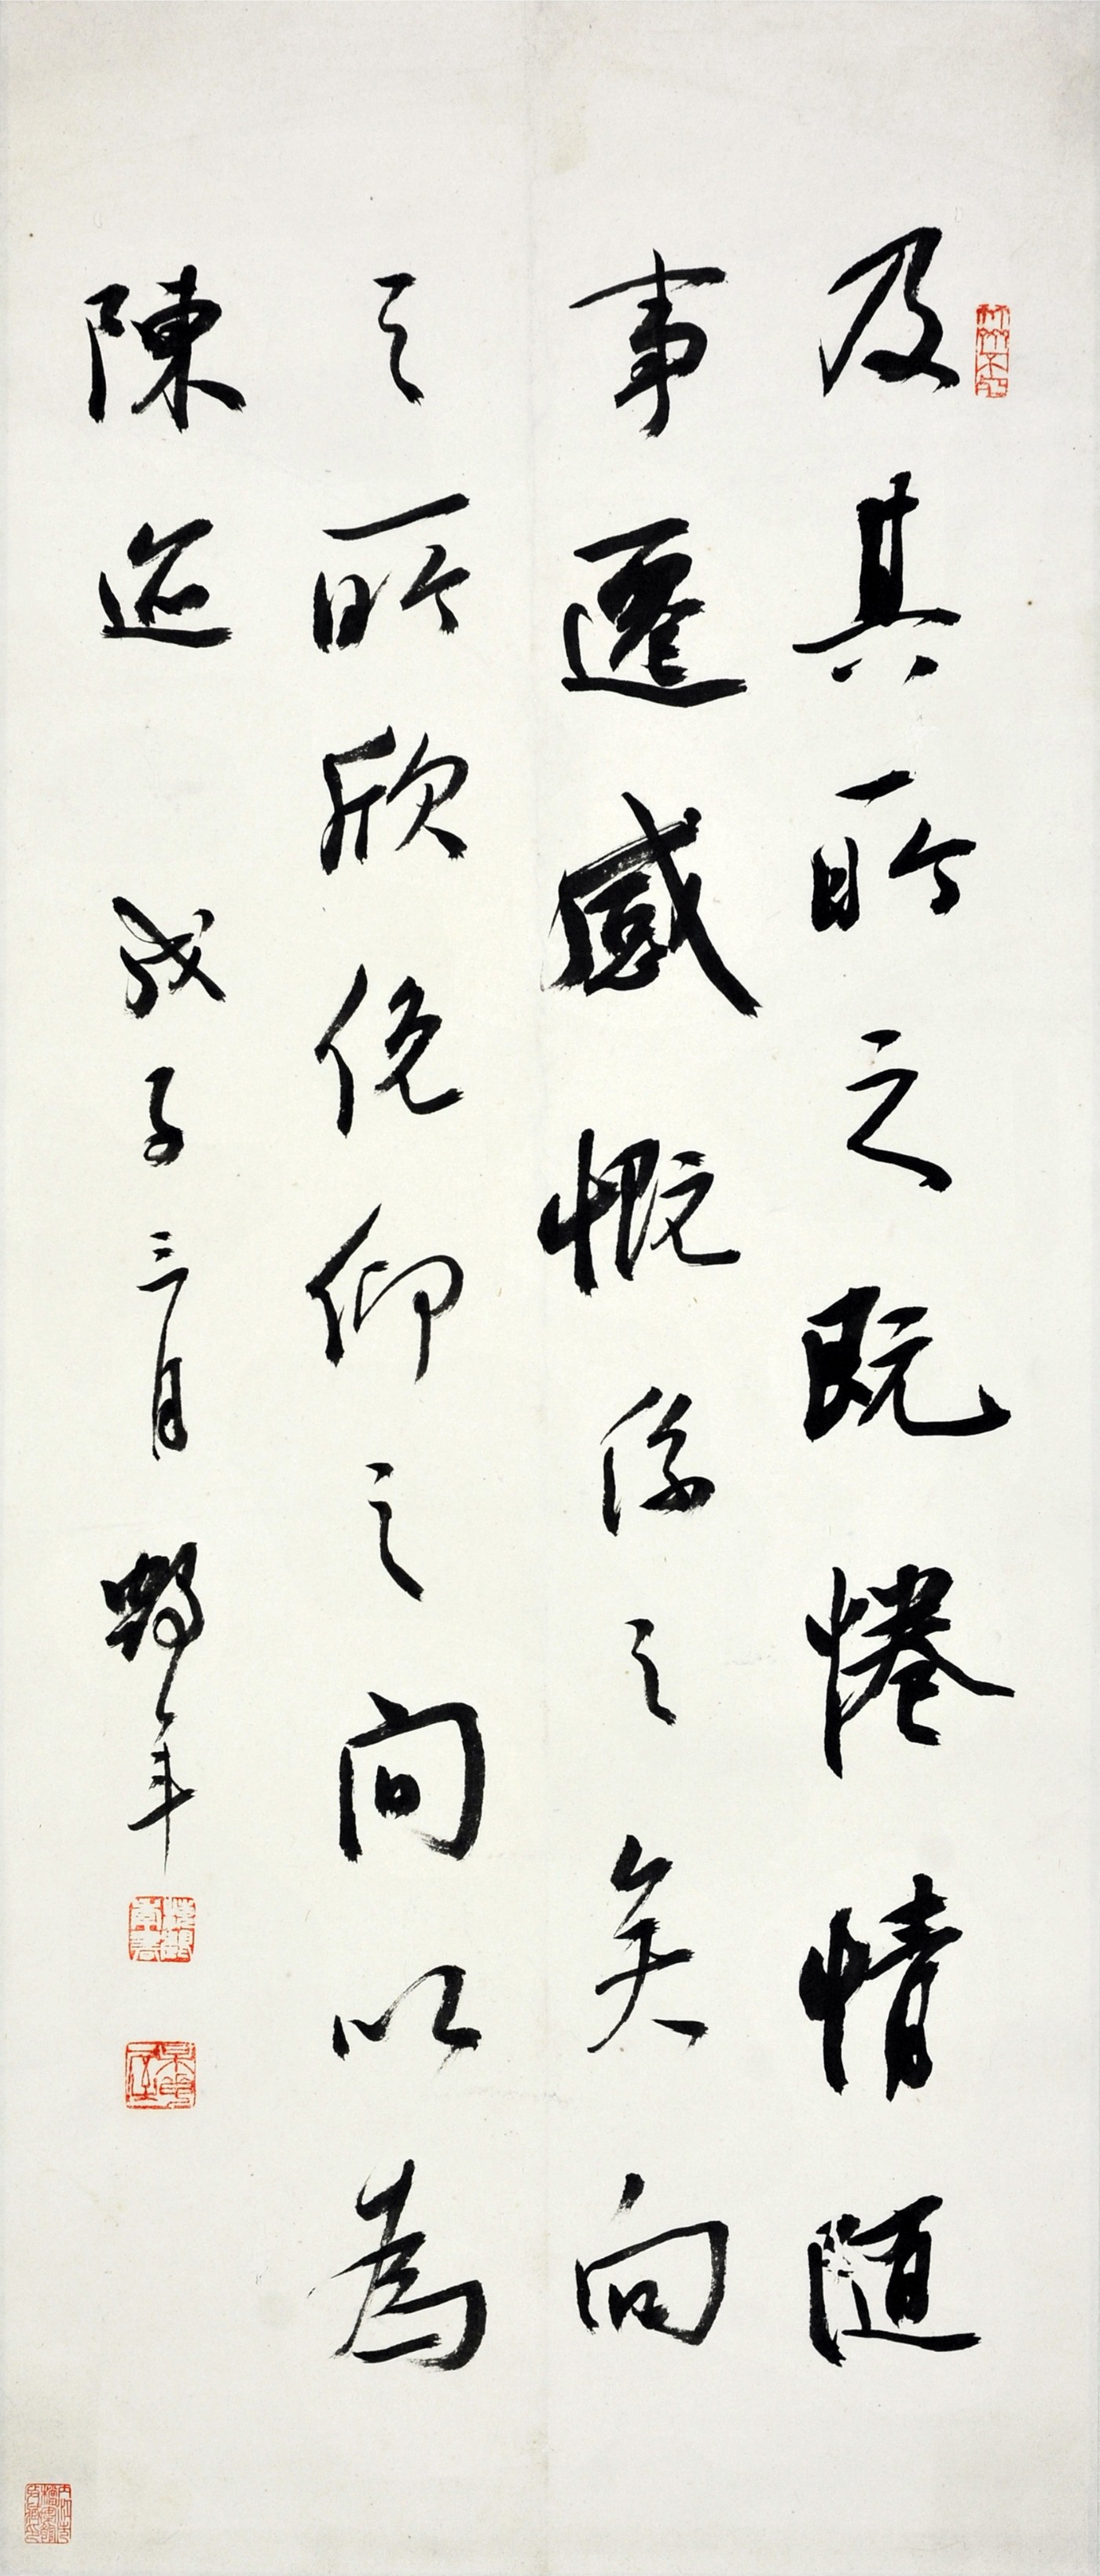 及其所之既惓情随
事遷感慨係之矣向
之所欣俛仰之间以為
陳迹 戊子三月 野年